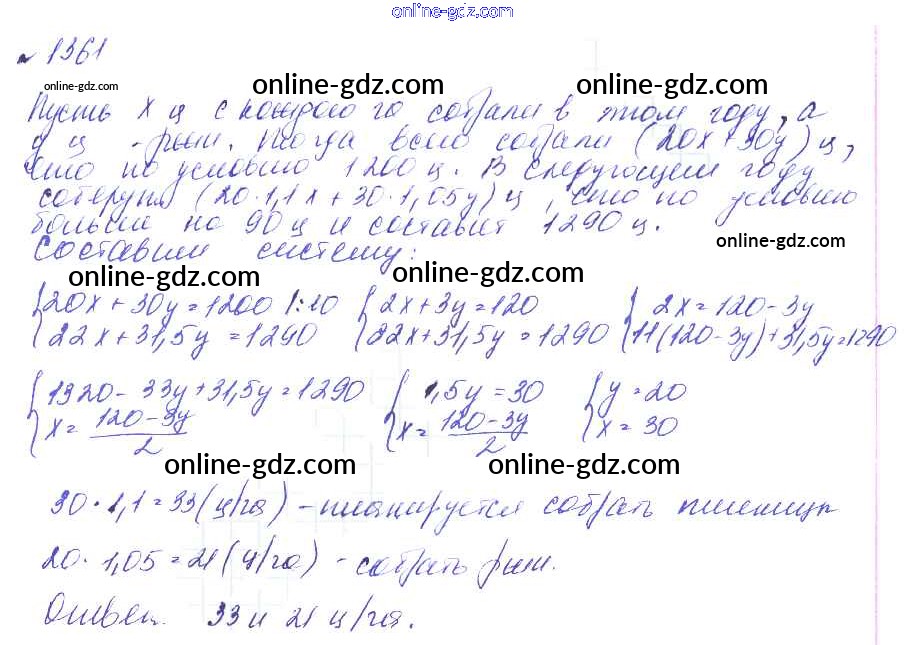 online-gdz.com
№ 1361
online-gdz.com online-gdz.com online-gdz.com
Пусть x ц с каждого га собрали в этом году, а
y ц - ржи. Тогда всего собрали (20x+30y) ц,
что по условию 1200 ц. В следующем году
соберут (20·1,1x + 30·1,05y) ц, что по условию
больше на 90 ц и составит 1290 ц.
online-gdz.com
Составим систему:
online-gdz.com online-gdz.com
{20x + 30y = 1200 |:10 {2x + 3y = 120 {2x = 120 - 3y
22x + 31,5y = 1290 22x + 31,5y = 1290 11(120 - 3y) + 31,5y = 1290
{1320 - 33y + 31,5y = 1290 {1,5y = 30 {y = 20
x = (120 - 3y)/2 x = (120 - 3y)/2 x = 30
online-gdz.com online-gdz.com
30 · 1,1 = 33 (ц/га) - планируется собрать пшеницы
20 · 1,05 = 21 (ц/га) - собрать ржи.
Ответ. 33 и 21 ц/га.